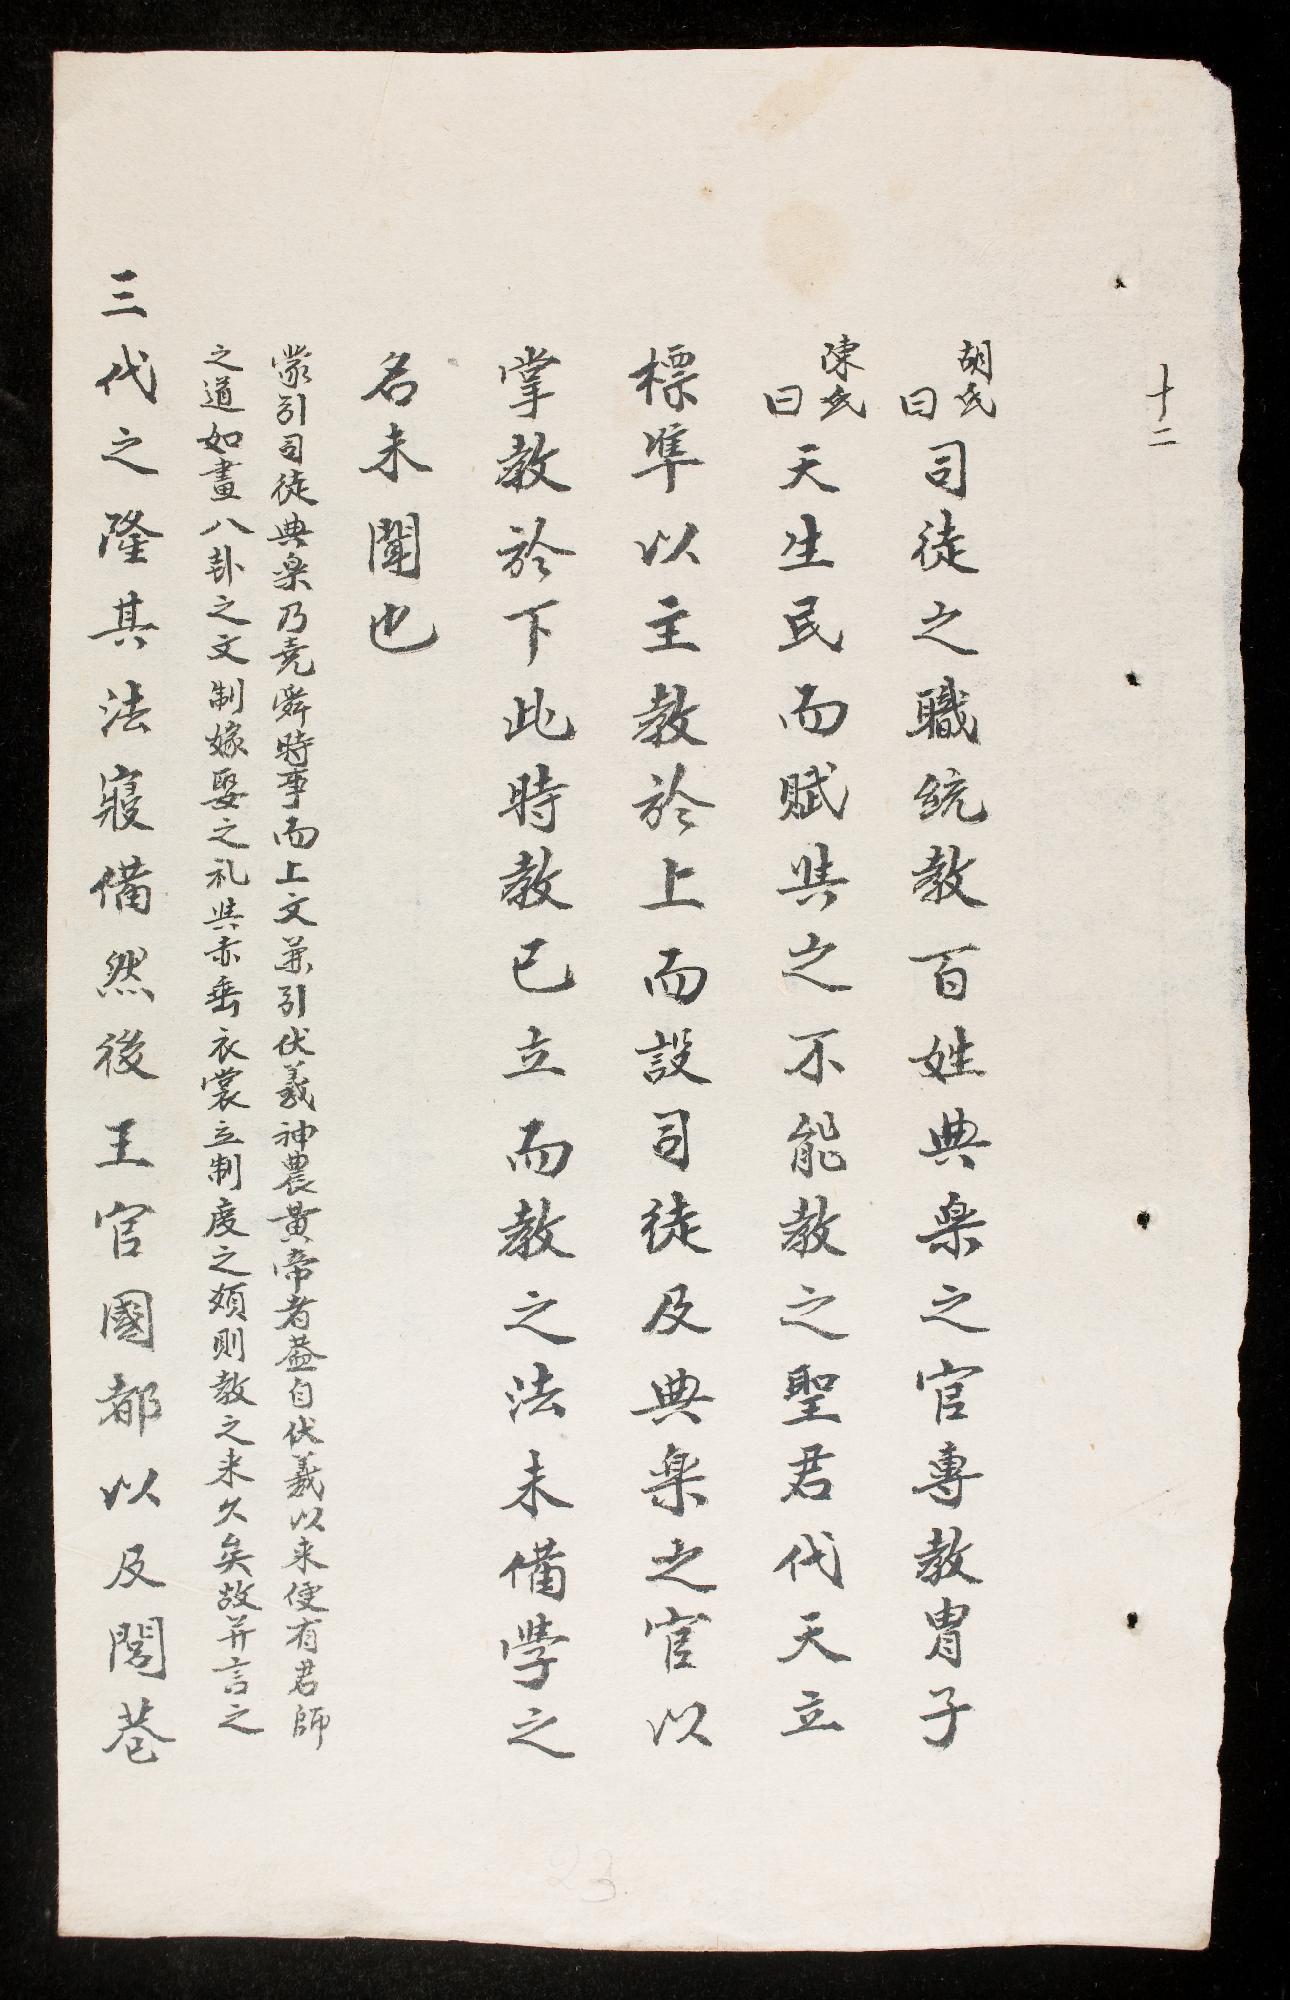 十二
胡氏曰司徒之職統教百姓典楽之官專教胄子
陳氏曰天生民而賦與之不能教之聖君代天立
標準以主教於上而設司徒及典楽之官以
掌教於下此時教已立而教之法未備學之
名未聞也
蒙引司徒典楽乃尭舜時事而上文兼引伏羲神農黃帝者蓋自伏羲以来便有君師
之道如畫八卦之文制嫁娶之礼與夫垂衣裳立制度之類則教之来久矣故并言之
三代之隆其法寢備然後王宮國都以及閭巷
23